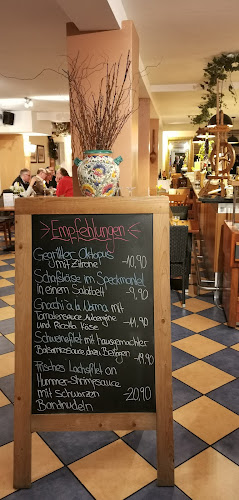 Empfehlungen
Gegrillter Oktopus
mit Zitrone 10,90
Schafskäse im Speckmantel
in einem Salatbett 9,90
Gnocchi à la Norma mit
Tomatensauce, Aubergine
und Ricotta Käse 11,90
Schweinefilet mit hausgemachter
Balsamicosauce, dazu Beilagen 19,90
Frisches Lachsfilet an
Hummer-Shrimpsauce
mit schwarzen 20,90
Bandnudeln